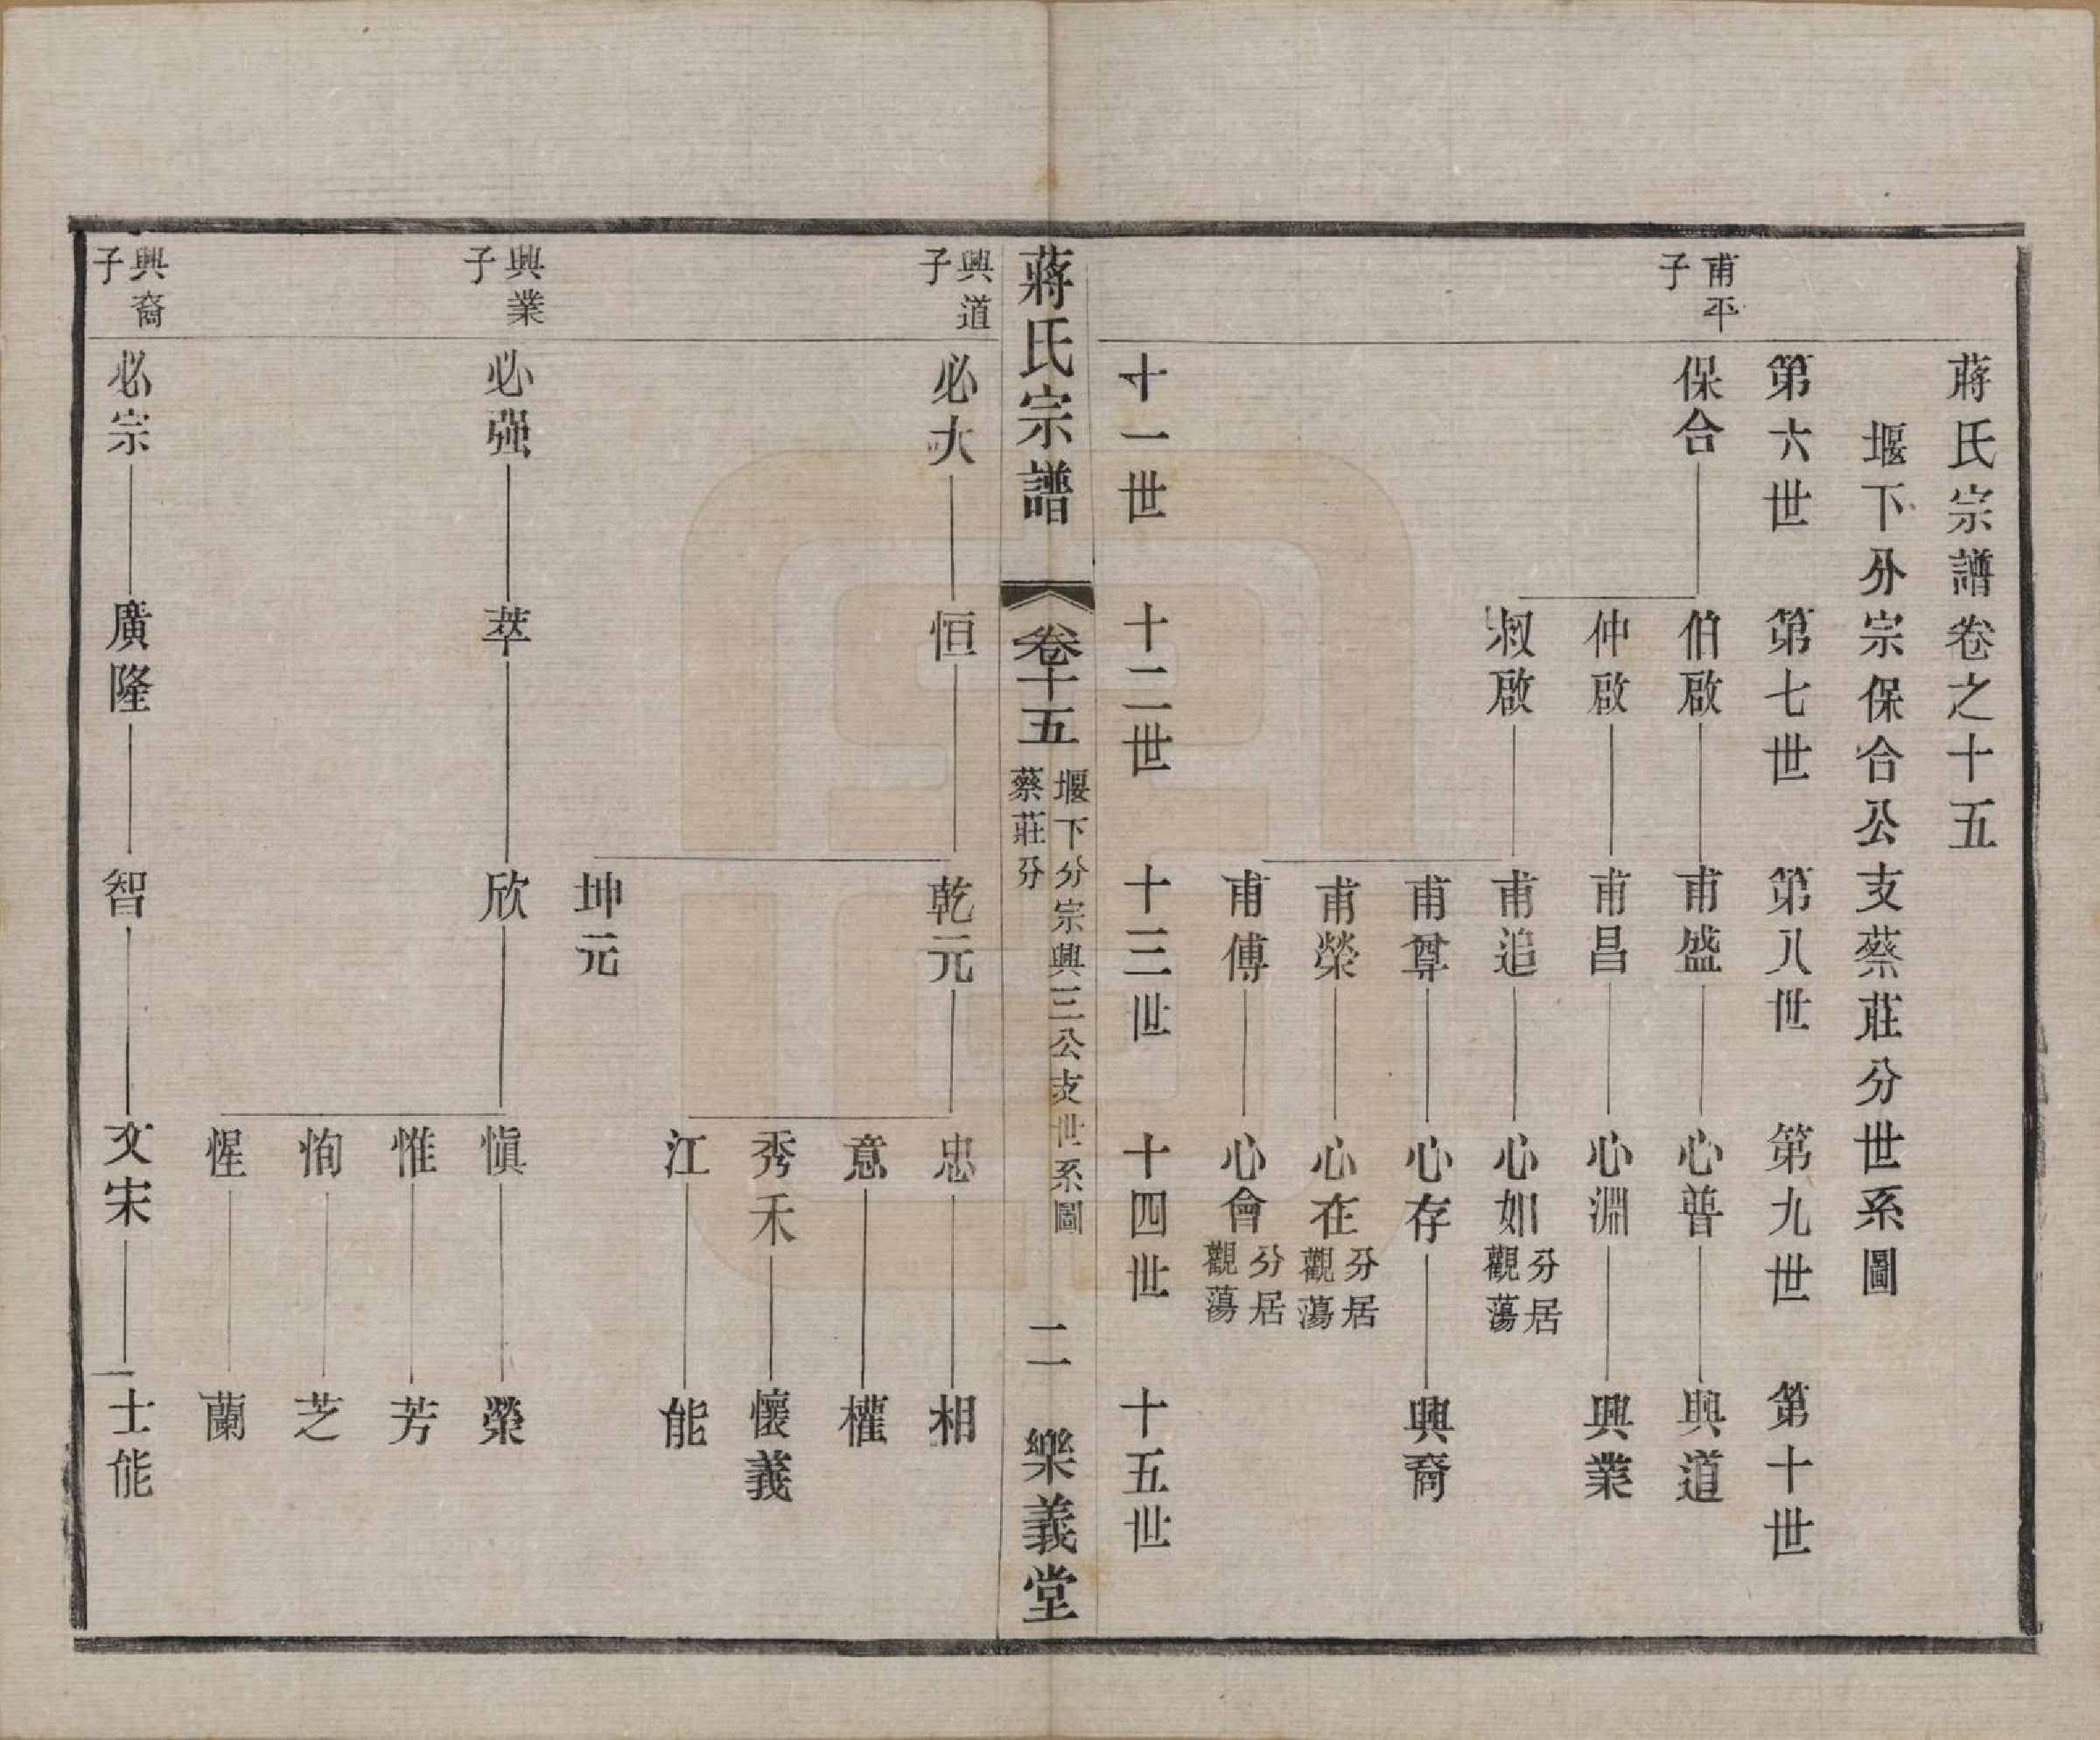 蔣氏宗譜卷之十五
堰下分宗保合公支蔡莊分世系圖
第六世 第七世 第八世 第九世 第十世
甫平子
保合 伯啟 甫盛 心普 興道
仲啟 甫昌 心淵 興業
叔啟 甫追 心如 分居觀蕩
甫尊 心存 興裔
甫榮 心在 分居觀蕩
甫傅 心會 分居觀蕩
十一世 十二世 十三世 十四世 十五世
蔣氏宗譜 卷十五 堰下分宗興三公支世系圖 蔡莊分 二 樂義堂
興道子
必大 恒 乾元 忠 相
意 權
秀禾 懷義
江 能
坤元
興業子
必強 萃 欣 愼 榮
惟 芳
恂 芝
惺 蘭
興裔子
必宗 廣隆 智 文宋 士能